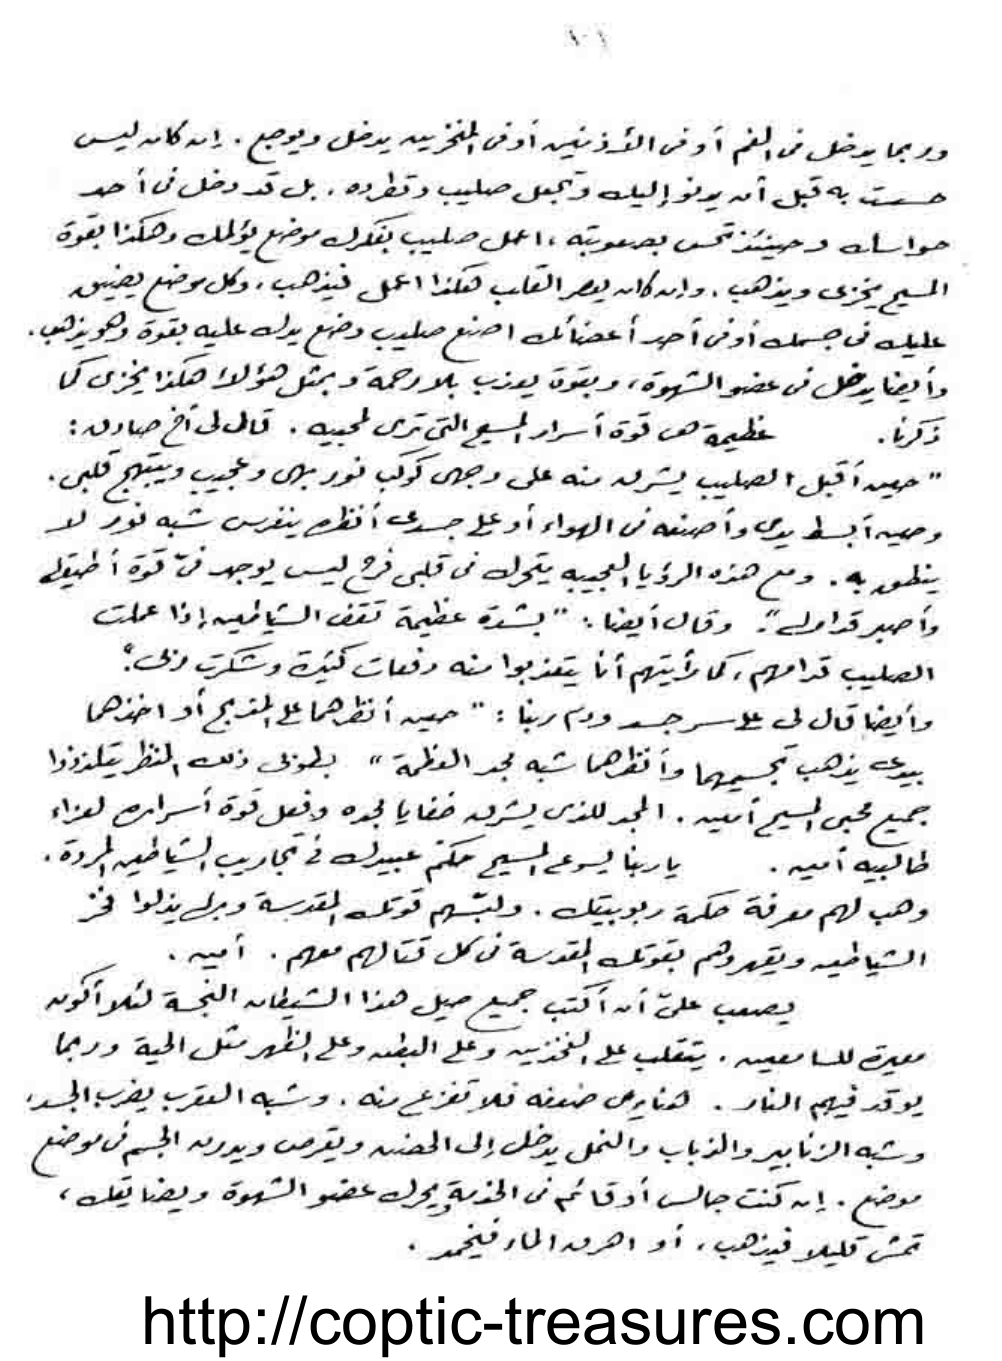 ١٠١
وربما يدخل فى الفم أو فى الأذنين أو فى المنخرين يدخل ويوجع . إن كان ليس
حسست به قبل أن يدنو إليك وتجعل صليب وتطرده . بل قد دخل فى أحد
حواسك وحينئذ تحس بصعوبته ، اعمل صليب بفكرك موضع يؤلمك وهكذا بقوة
المسيح يخزى ويذهب . وإن كان يعصر القلب هكذا اعمل فيذهب ، وكل موضع يضيق
عليك فى جسمك أو فى أحد أعضائك اصنع صليب وضع يدك عليه بقوة وهو يذهب .
وأيضا يدخل فى عضو الشهوة ، وبقوة يعذب بلا رحمة وبمثل هؤلاء هكذا يخزى كما
ذكرنا . عظيمة هى قوة أسرار المسيح التى ترى لمحبيه . قال لى أخ صادق :
" حين أقبل الصليب يشرق منه على وجهى كوكب نور بهى وعجيب ويبتهج قلبى .
وحين أبسط يدى وأصنعه فى الهواء أو على جسدى أنظره ينغرس شبه نور لا
ينطق به . ومع هذه الرؤيا العجيبة يتحرك فى قلبى فرح ليس يوجد فىّ قوة أطيقه
وأصبر قدامه " . وقال أيضا : " بشدة عظيمة تقف الشياطين إذا عملت
الصليب قدامهم ، كما رأيتهم أنا يتعذبوا منه دفعات كثيرة وشكرت ربى " .
وأيضا قال لى على سر جسد ودم ربنا : " حين أنظرهما على المذبح أو اخذهما
بيدى يذهب تجسيمهما وأنظرهما شبه مجد العظمة " بطوبى ذلك المنظر يتلذذوا
جميع محبى المسيح أمين . المجد للذى يشرق خفايا مجده وفعل قوة أسراره لعزاء
طالبيه أمين . يا ربنا يسوع المسيح حكّم عبيدك فى تجاريب الشياطين المردة .
وهب لهم معرفة حكمة ربوبيتك . ولبّسهم قوتك المقدسة يذلوا فخر
الشياطين ويقهروهم بقوتك المقدسة فى كل قتالهم معهم . أمين .
يصعب علىّ أن أكتب جميع حيل هذا الشيطان النجسة لئلا أكون
معيرة للسامعين . يتقلب على الفخذين وعلى البطن وعلى الظهر مثل الحية وربما
يوقد فيهم النار . ضعفه فلا تفزع منه . وشبه العقرب يضرب الجسد ،
وشبه الزنابير والذباب والنمل يدخل إلى الحضن ويقرص ويدور الجسم فى موضع
موضع . إن كنت جالس أو قائم فى الخدمة ويحرك عضو الشهوة ويضايقك ،
تمش قليلا فيذهب ، أو اهرق الماء فيخمد .
http://coptic-treasures.com